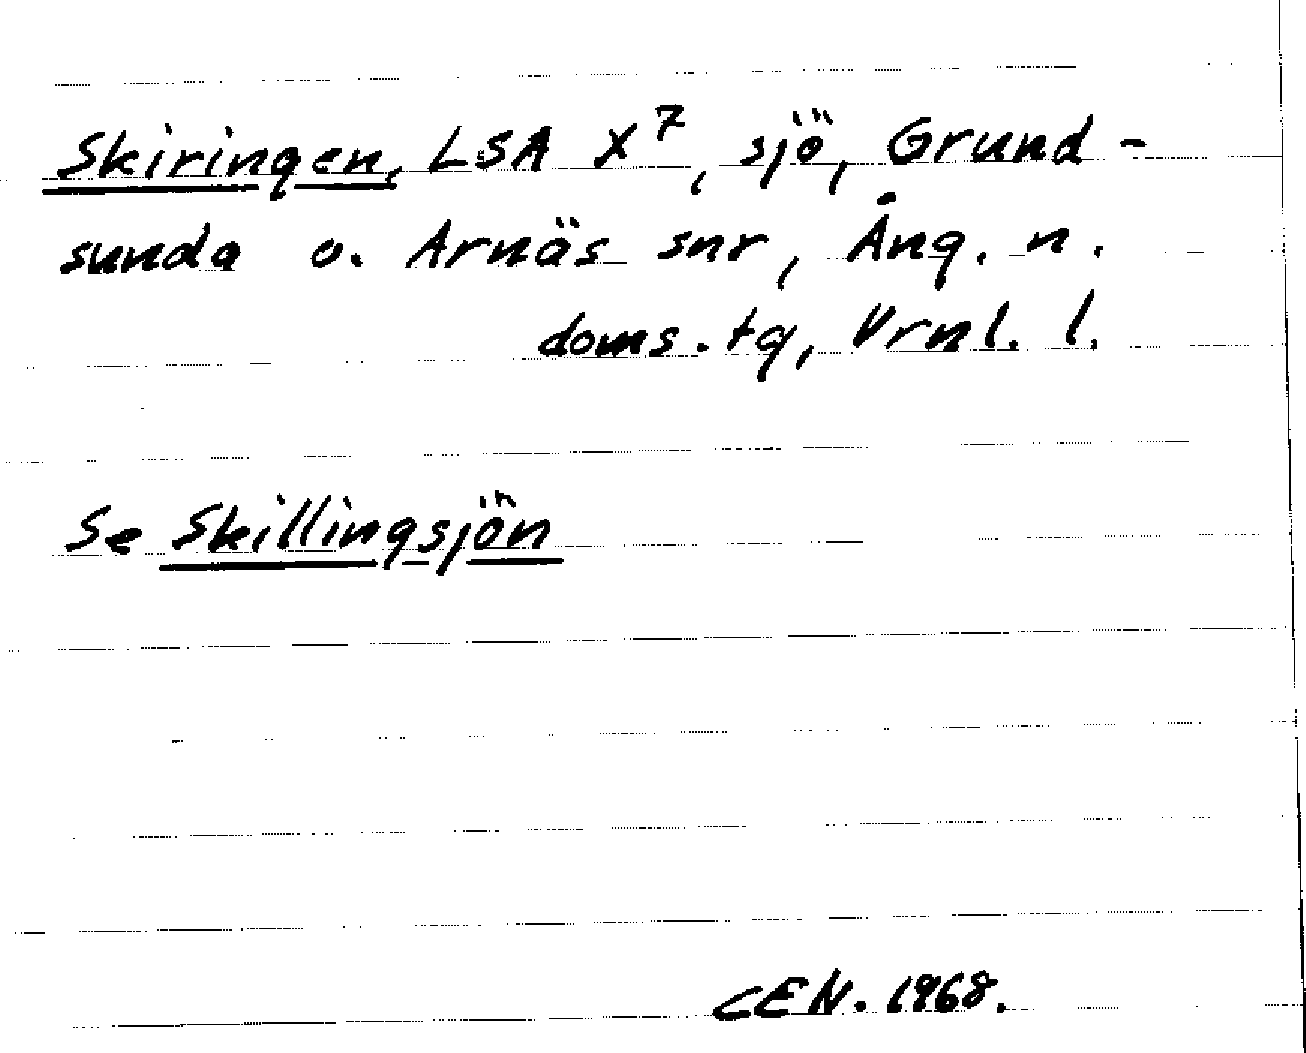 Skiringen, LSA X7, sjö, Grund-
sunda o. Arnäs snr, Ång. n.
doms.tg, Vrnl. l.
Se Skillingsjön
CEN. 1968.